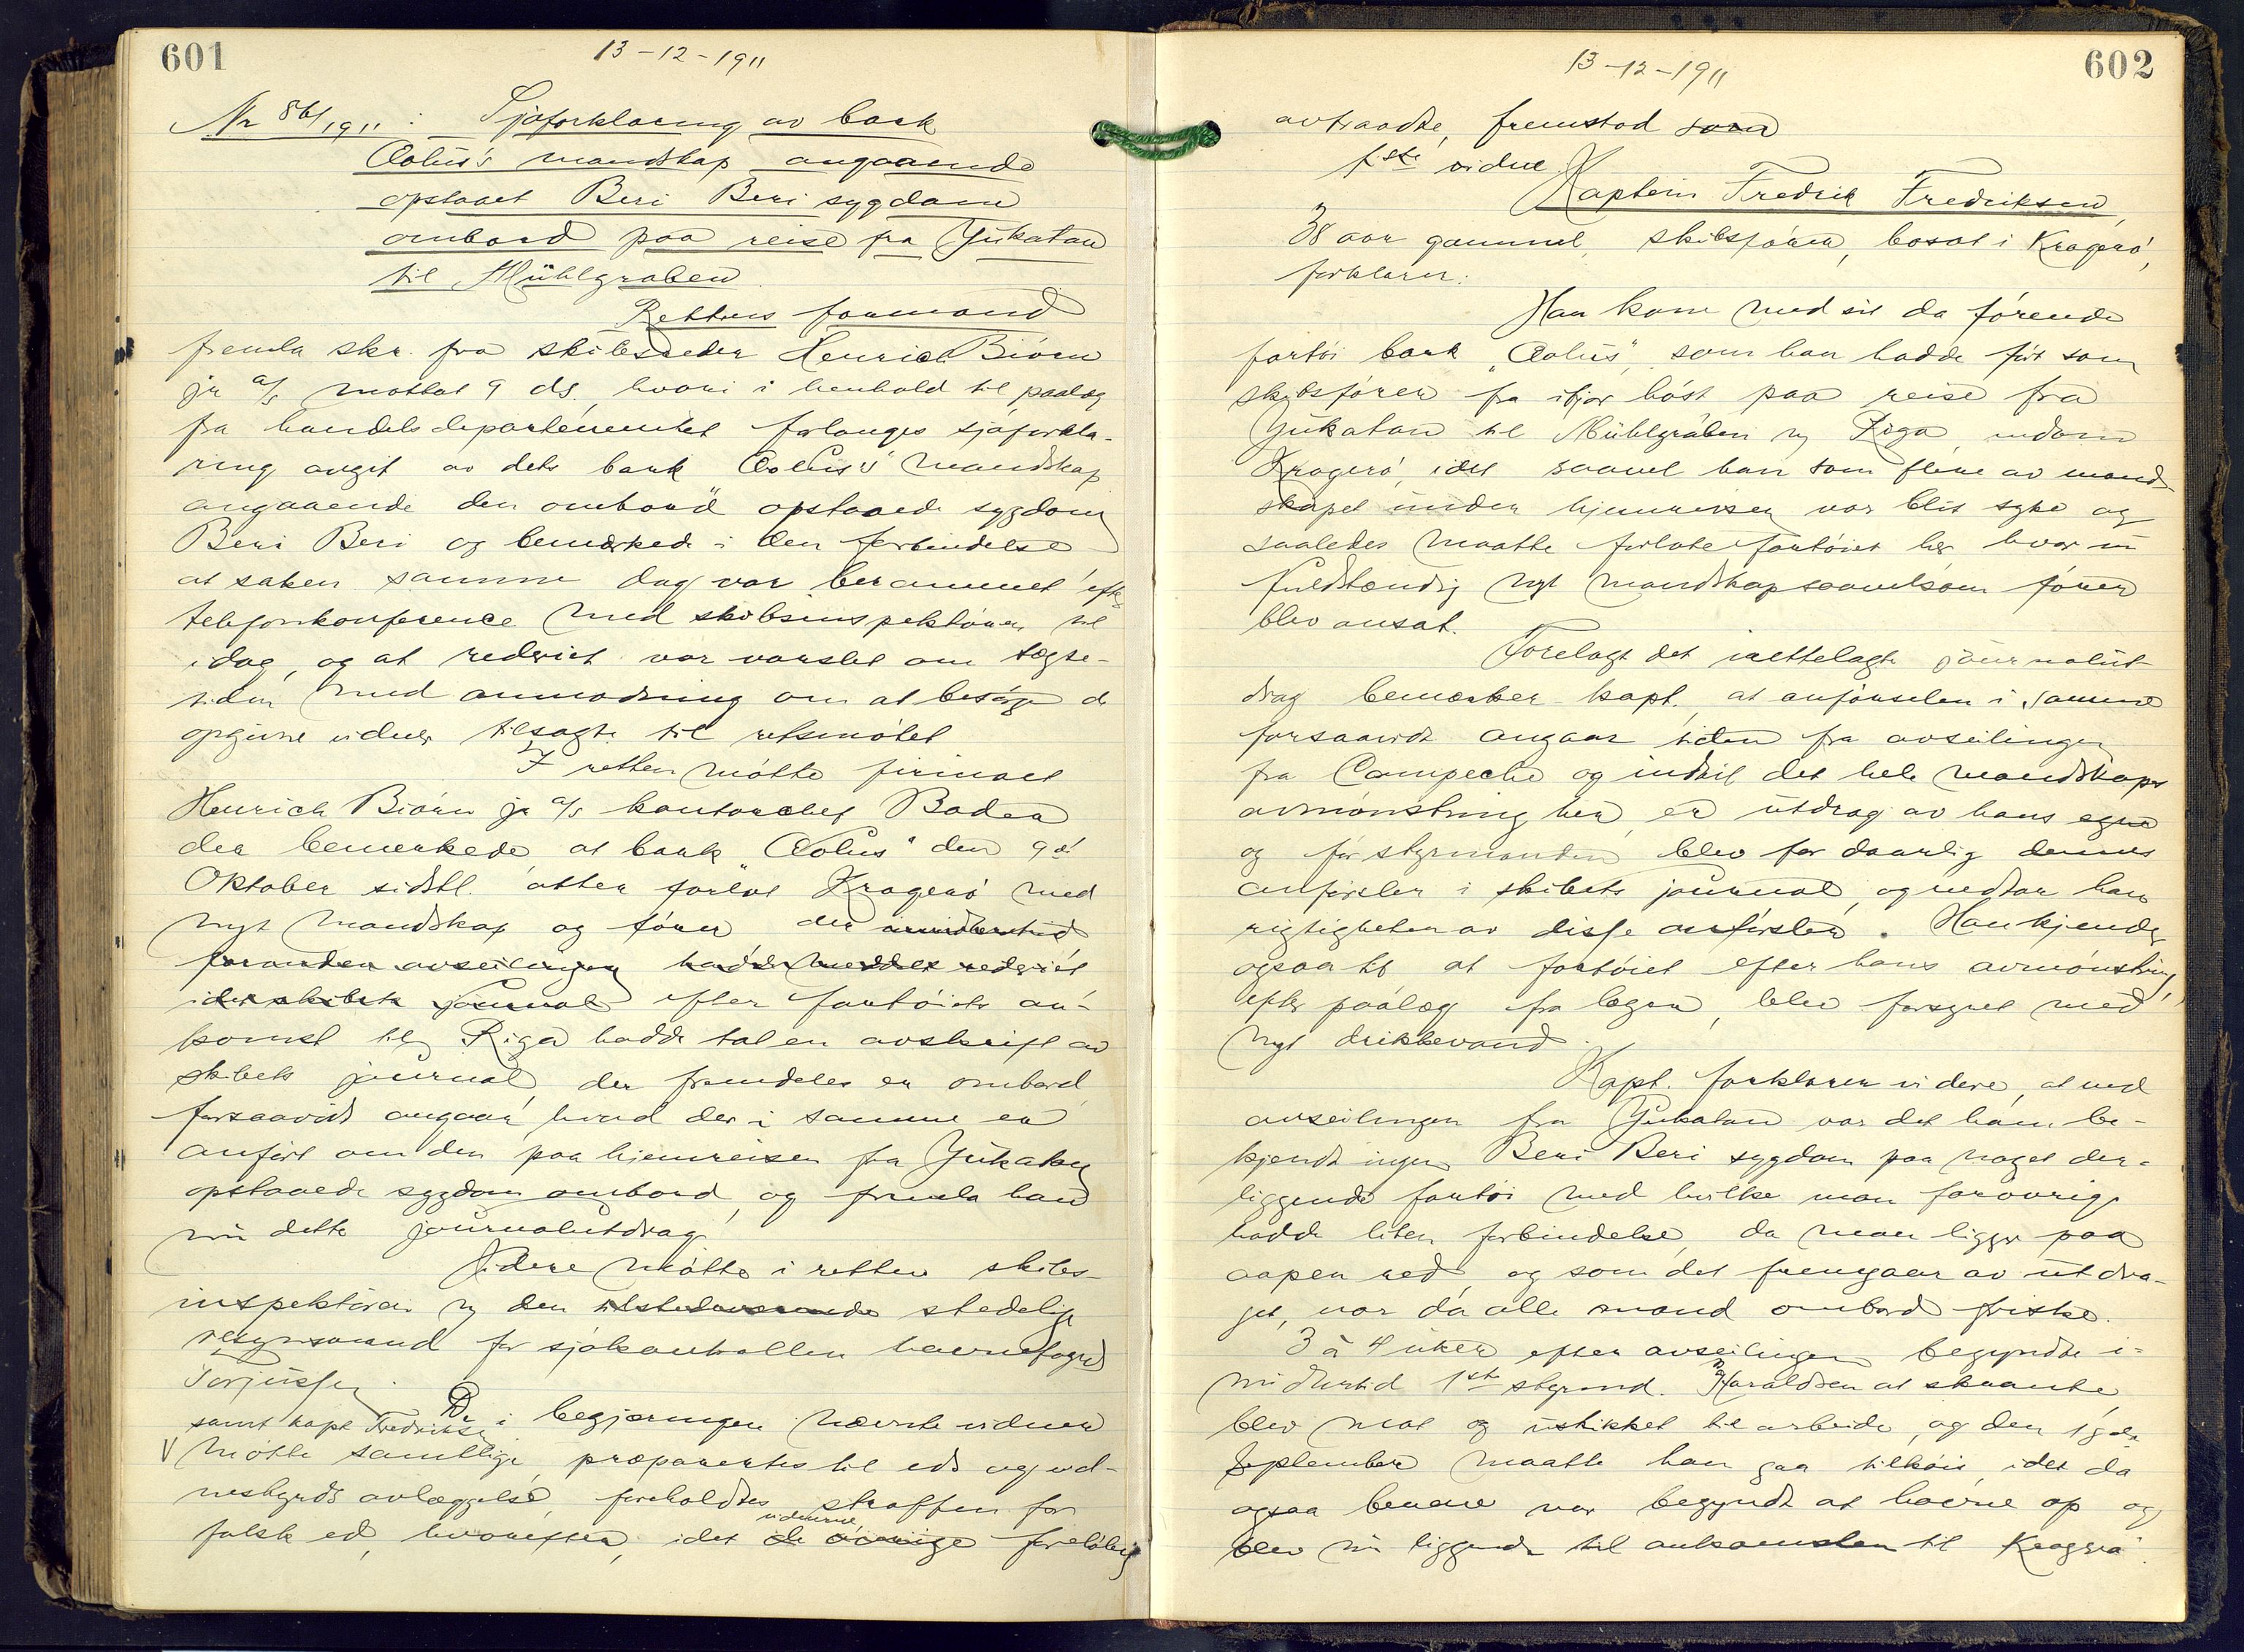 601
13-12-1911
Nr 86/1911: Sjøforklaring av bark
Æolus's mandskap angaaende
opstaaet Beri Beri sygdom
ombord paa reise fra Yukatan
til Mühlgraben.
Rettens formand
fremla skr. fra skibsreder Henrich Biørn
jr a/s mottat 9 ds., hvori i henhold til paalæg
fra handelsdepartementet forlanges sjøforkla-
ring avgit av dets bark "Æolus's" mandskap
angaaende den ombord opstaaede sygdom
Beri Beri og bemerkede i den forbindelse
at saken samme dag var berammet efter
telefonkonference med skibsinspektøren til
idag, og at rederiet var varslet om tægte-
tiden med anmodning om at besørge de
opgivne vidner tilsagte til retsmøtet
I retten møtte firmaet
Henrich Biørn jr a/s kontorchef Boden
der bemerkede at bark "Æolus" den 9de
Oktober sidstl. atter forlot Kragerø med
nyt mandskap og fører der imidlertid
forinden avseilingen hadde meddelt rederiet
idet skibets journal efter fartøiets an-
komst til Riga hadde tat en avskrift av
skibets journal, der fremdeles er ombord,
forsaavidt angaar, hvad der i samme er
anført om den paa hjemreisen fra Yukatan
opstaaede sygdom ombord, og fremla han
nu dette journalutdrag.
Videre møtte i retten skibs-
inspektøren og den tilstedeværende stedelige
tilsynsmand for sjøkontrollen havnefoged
Torjussen.
De i begjæringen nævnte vidner
samt kapt Fredriksen
møtte samtlige, præparertes til eds og vid-
nesbyrds avlæggelse, foreholdtes straffen for
falsk ed, hvorefter, idet de øvrige vidnerne foreløbig
602
13-12-1911
avtraadte, fremstod som
1ste vidne:
Kaptein Fredrik Fredriksen,
38 aar gammel, skibsfører, bosat i Kragerø,
forklarer:
Han kom med sit da førende
fartøi bark "Æolus", som han hadde ført som
skibsfører fra ifjor høst paa reise fra
Yukatan til Mühlgraben og Riga indom
Kragerø, idet saavel han som flere av mand-
skapet under hjemreisen var blit syke og
saaledes maatte forlate fartøiet her hvor nu
fuldstændig nyt mandskap saavelsom fører
blev ansat.
Forelagt det irettelagte journalut-
drag bemerker kapt., at anførselen i samme
forsaavidt angaar tiden fra avseilingen
fra Campeche og indtil det hele mandskaps
avmønstring her, er utdrag av hans egne
og før styrmanden blev for daarlig dennes
anførsler i skibets journal, og vedtar han
rigtigheten av disse anførsler. Han kjender
ogsaa til at fartøiet efter hans avmønstring,
efter paalæg fra lægen, blev forsynet med
nyt drikkevand.
Kapt. forklarer videre, at ved
avseilingen fra Yukatan var det ham be-
kjendt ingen Beri Beri sygdom paa noget der-
liggende fartøi med hvilke man forøvrig
hadde liten forbindelse, da man ligger paa
aapen red, og som det fremgaar av utdra-
get, var da alle mand ombord friske.
3 à 4 uker efter avseilingen begyndte i-
midlertid 1ste styrmd. Haraldsen at skrante,
blev mat og uskikket til arbeide, og den 19de
September maatte han gaa tilkøis, idet da
ogsaa benene var begyndt at hovne op og
blev nu liggende til ankomsten til Kragerø.